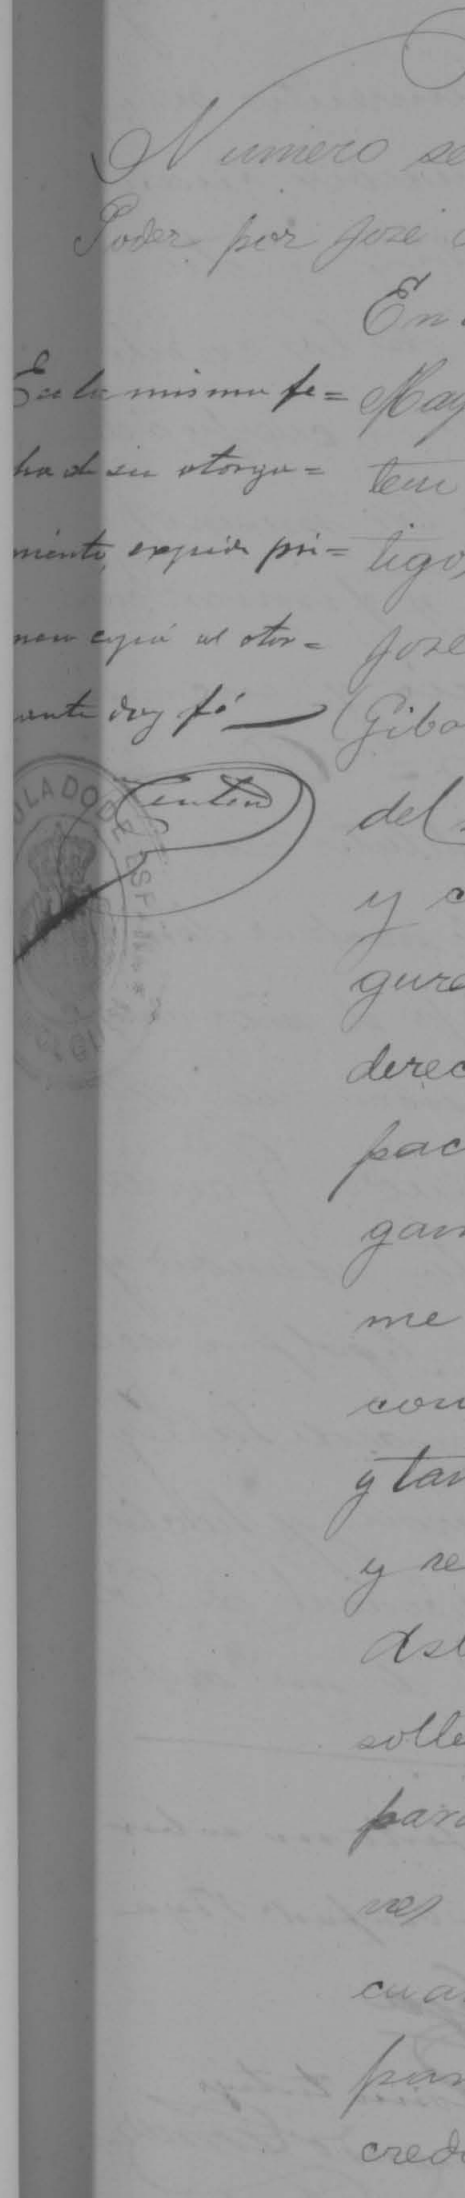 Numero se
Poder por José
En
En la misma fe=
cha de su otorga=
miento, expido pri=
mera copia al otor=
gante doy fé
May
tem
tigo,
José
Giba
del
y c
gura
derec
pac
gan
me
con
y tan
y re
solle
para
ves
cua
par
cred